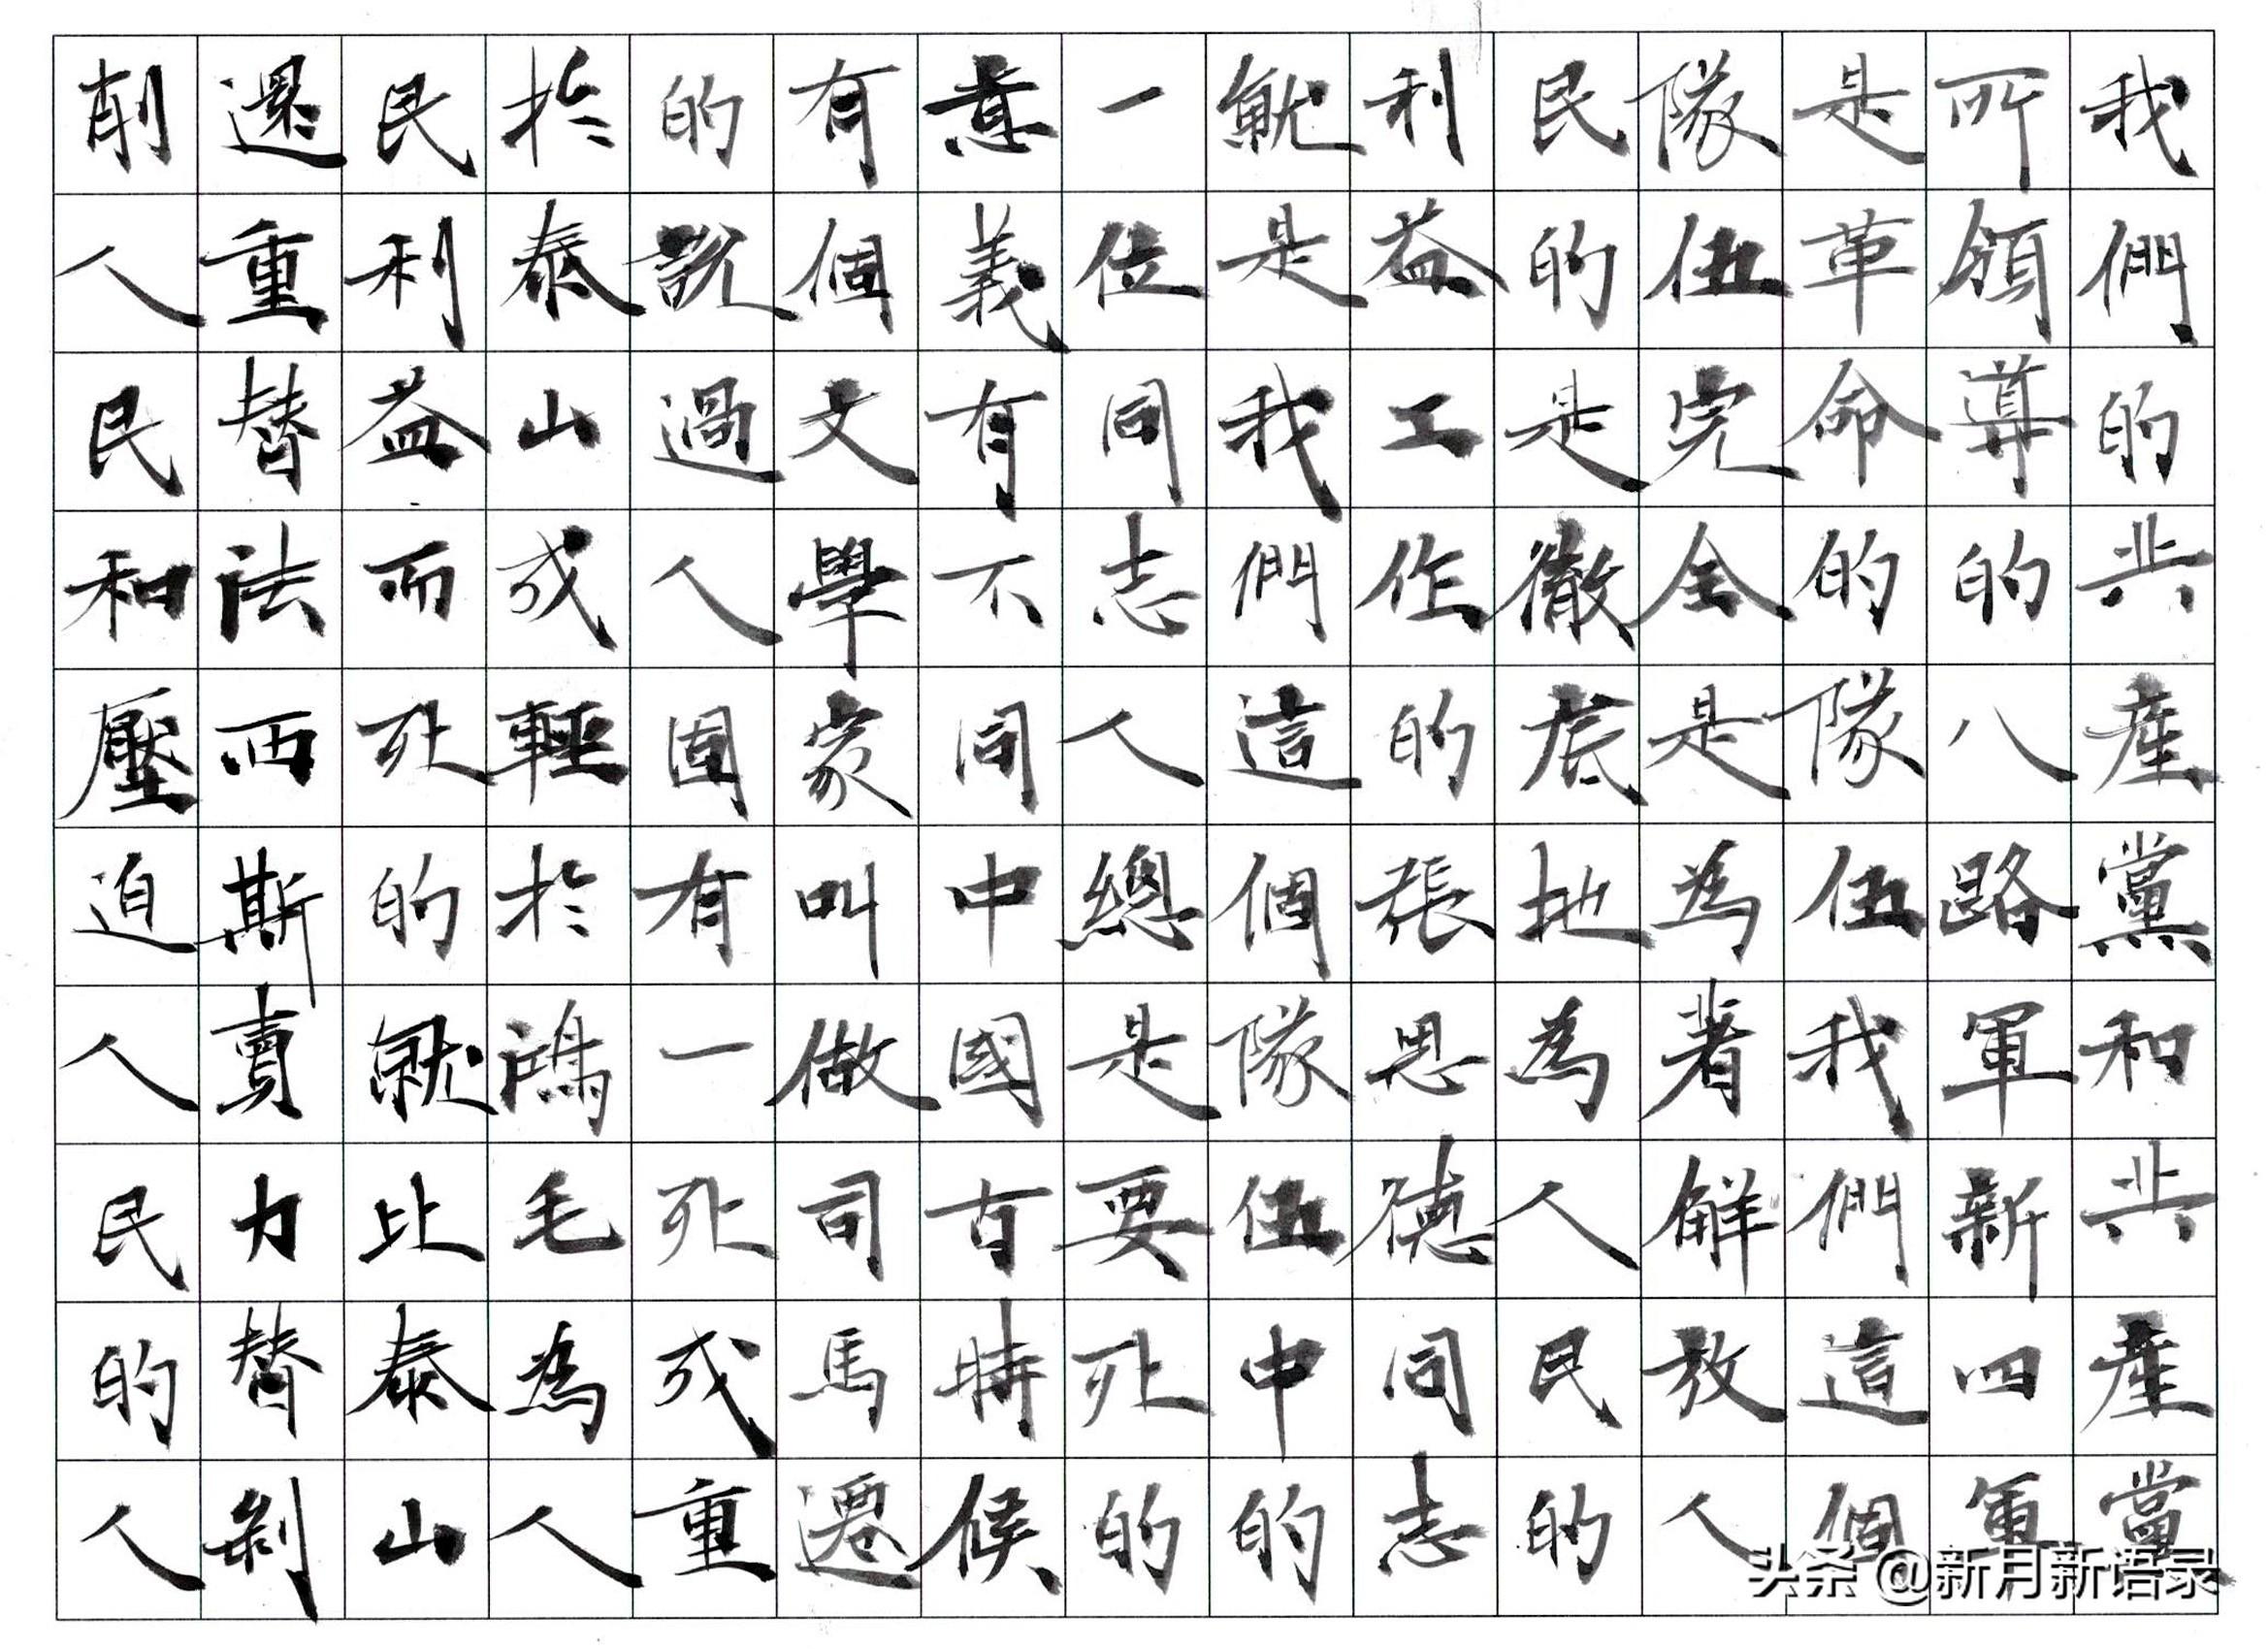 我們的共產黨和共產黨
所領導的八路軍新四軍
是革命的隊伍我們這個
隊伍完全是為著解放人
民的是徹底地為人民的
利益工作的張思德同志
就是我們這個隊伍中的
一位同志人總是要死的
意義有不同中國古時候
有個文學家叫做司馬遷
的說過人固有一死或重
於泰山或輕於鴻毛為人
民利益而死的就比泰山
還重替法西斯賣力替剝
削人民和壓迫人民的人
头条 @新月新语录